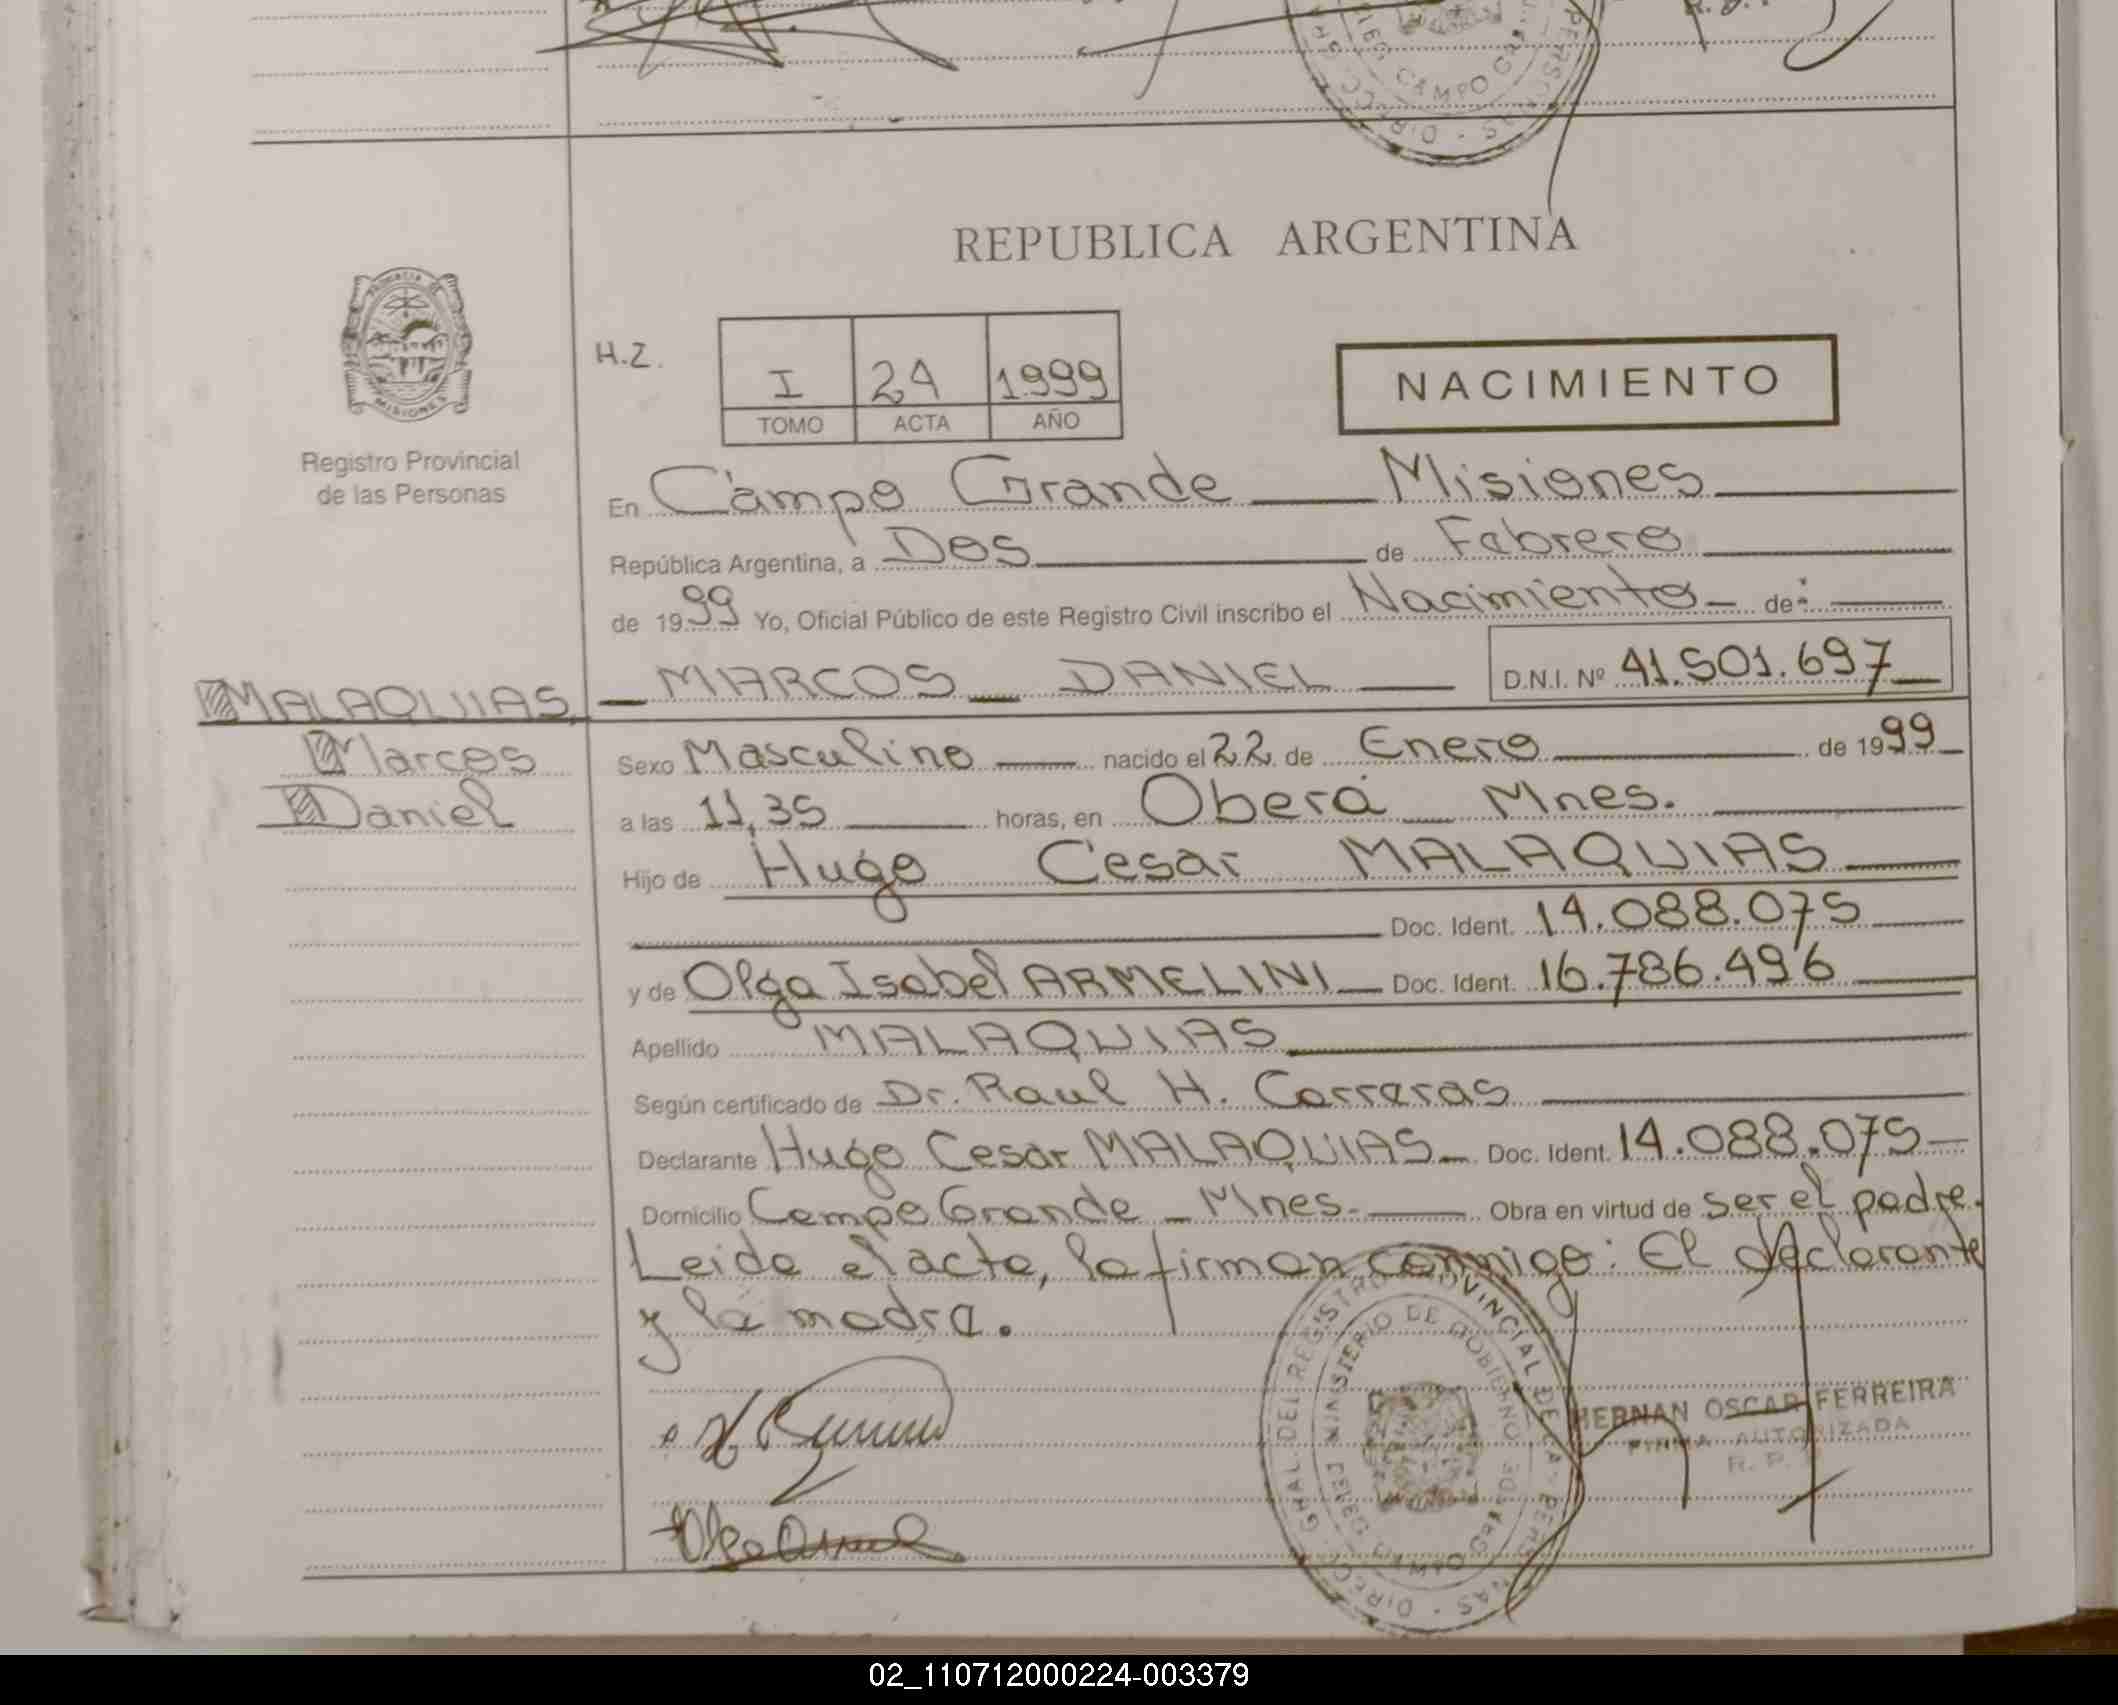 CAMPO
REPUBLICA ARGENTINA
H.Z.
I 24 1999
TOMO ACTA AÑO
NACIMIENTO
PROVINCIA DE
MISIONES
Registro Provincial
de las Personas
En Campo Grande Misiones
República Argentina, a Dos de Febrero
de 1999 Yo, Oficial Público de este Registro Civil inscribo el Nacimiento de:
MALAQUIAS, MARCOS DANIEL D.N.I. Nº 41.501.697
Marcos
Daniel
Sexo Masculino nacido el 22 de Enero de 1999
a las 11,35 horas, en Oberá Mnes.
Hijo de Hugo Cesar MALAQUIAS
Doc. Ident. 14.088.075
y de Olga Isabel ARMELINI Doc. Ident. 16.786.496
Apellido MALAQUIAS
Según certificado de Dr. Raul H. Correras
Declarante Hugo Cesar MALAQUIAS Doc. Ident. 14.088.075
Domicilio Campo Grande - Mnes. Obra en virtud de ser el padre.
Leida el acta, la firman conmigo: El declarante
y la madre.
DIRECC. GRAL. DEL REGISTRO PROVINCIAL DE LAS PERSONAS
MINISTERIO DE GOBIERNO
DELEG. CAMPO GRANDE
HERNAN OSCAR FERREIRA
FIRMA AUTORIZADA
R. P. P.
02_110712000224-003379